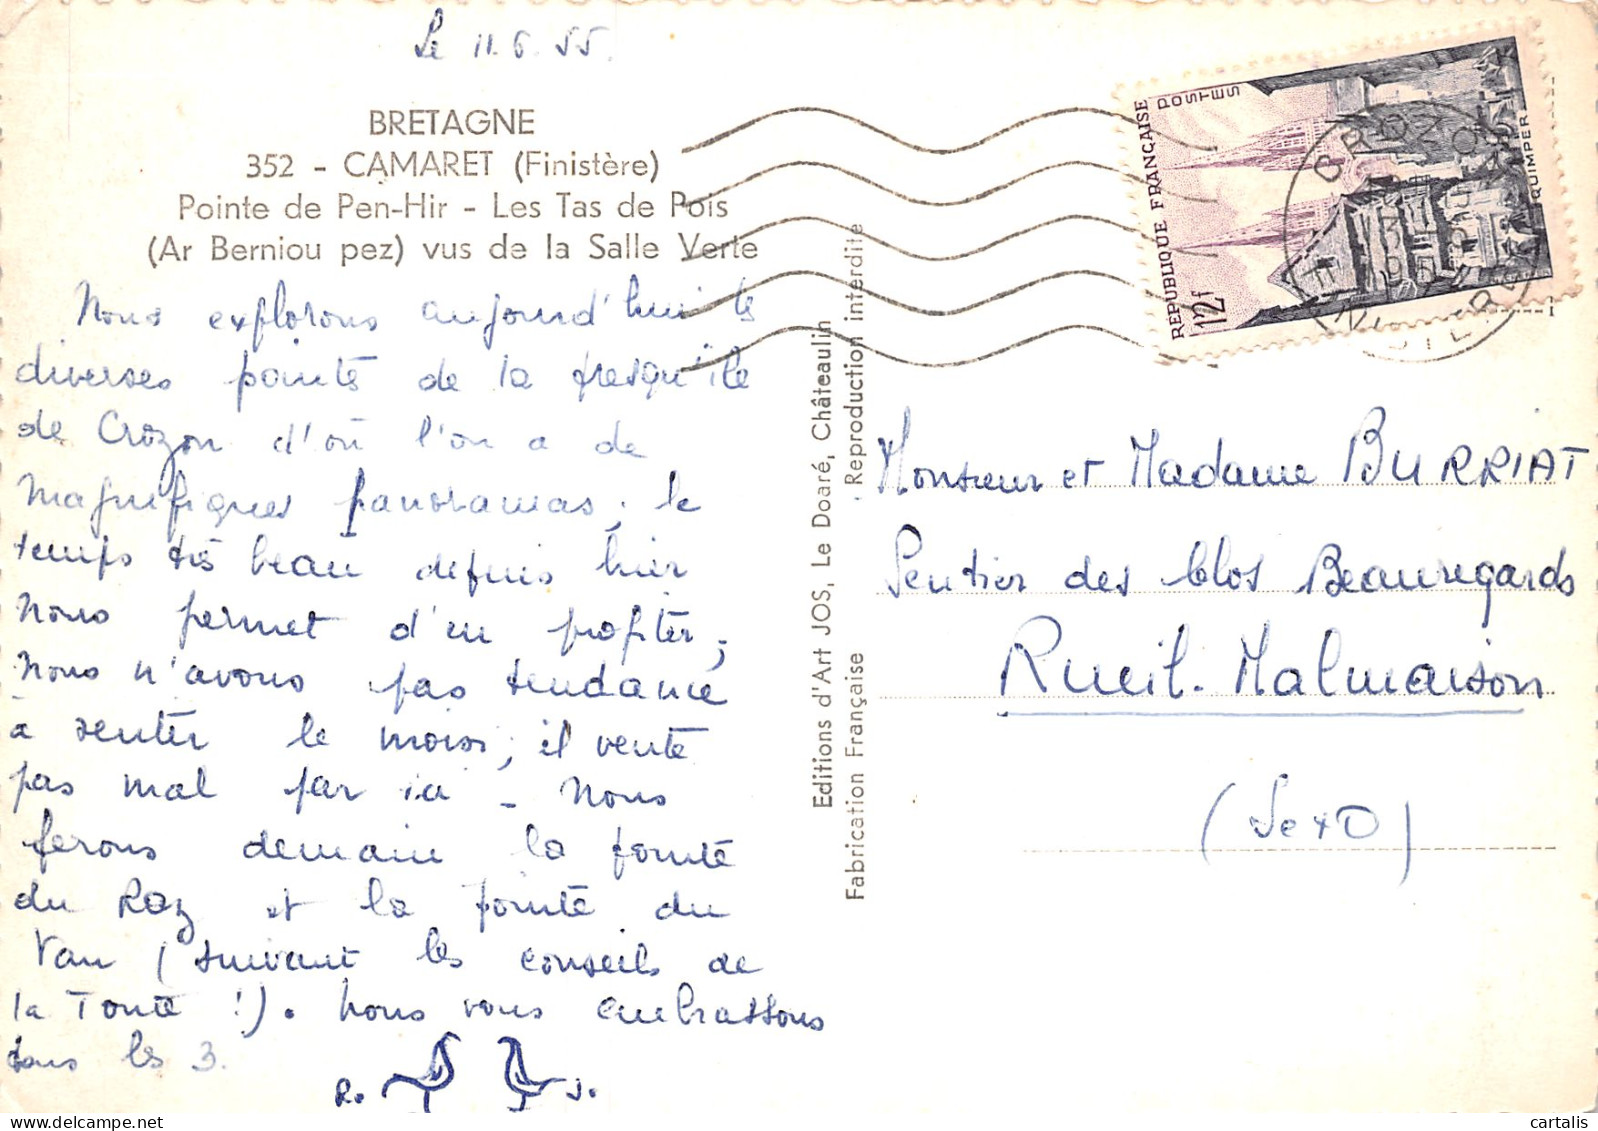 Le 11.6.55
BRETAGNE
352 - CAMARET (Finistère)
Pointe de Pen-Hir - Les Tas de Pois
(Ar Berniou pez) vus de la Salle Verte
Nous explorons aujourd'hui les
diverses pointes de la presqu'île
de Crozon d'où l'on a de
magnifiques panoramas ; le
temps très beau depuis hier
nous permet d'en profiter ;
nous n'avons pas tendance
à
le moins ; il vente
pas mal par ici - Nous
ferons demain la pointe
du Raz et la pointe du
Van (suivant les conseils de
la Tante !). Nous vous embrassons
tous les 3.
R. J.
Editions d'Art JOS, Le Doaré, Châteaulin
Fabrication Française . Reproduction Interdite
REPUBLIQUE FRANÇAISE
POSTES
12f
QUIMPER
CROZON
FINISTERE
Monsieur et Madame BURRIAT
Sentier des Clos Beauregards
Rueil-Malmaison
(S et O)
cartalis